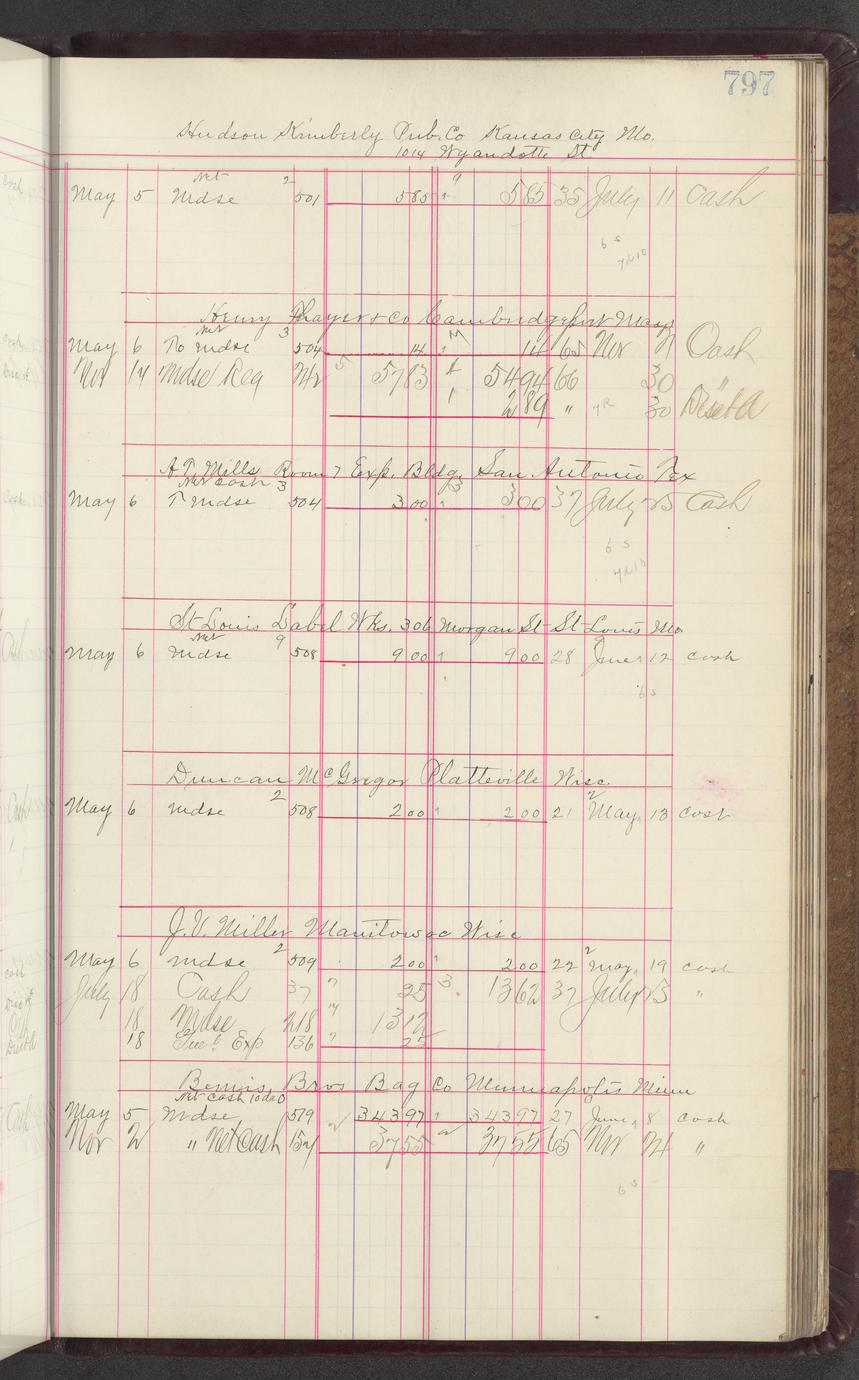 797
Hudson Kimberly Pub. Co Kansas City Mo.
1014 Wyandotte St
Net
May 5 Mdse 2 501 585 9 585 35 July 11 Cash
6 s
Henry Thayer & Co Cambridgeport Mass
Net
May 6 To Mdse 3 504 14 14 65 Nov 21 Cash
Nov 14 Mdse Reg 5783 5494 66 30 "
289 " 30
A. T. Mills Room 7 Exp. Bldg. San Antonio Tex
Net Cash
May 6 T Mdse 3 504 300 3 300 37 July 25 Cash
6 s
St Louis Label Wks. 306 Morgan St St Louis Mo
Net
May 6 Mdse 9 508 9 00 9 00 28 June 12 cash
6 s
Duncan McGregor Platteville Wisc
May 6 Mdse 2 508 2 00 2 00 21 2 May 13 cash
J. V. Miller Manitowoc Wisc
May 6 Mdse 2 509 2 00 2 00 22 2 May 19 cash
July 18 Cash 37 7 25 3 1362 37 July 23 "
18 Mdse 218 7 1312
18 Exp 136 7 25
Bemis Bros Bag Co Minneapolis Minn
Net Cash 10 da
May 5 Mdse 519 343 97 343 97 27 June 8 cash
Nov 2 " Net Cash 154 2 3755 2 3755 65 Nov 24 "
6 s